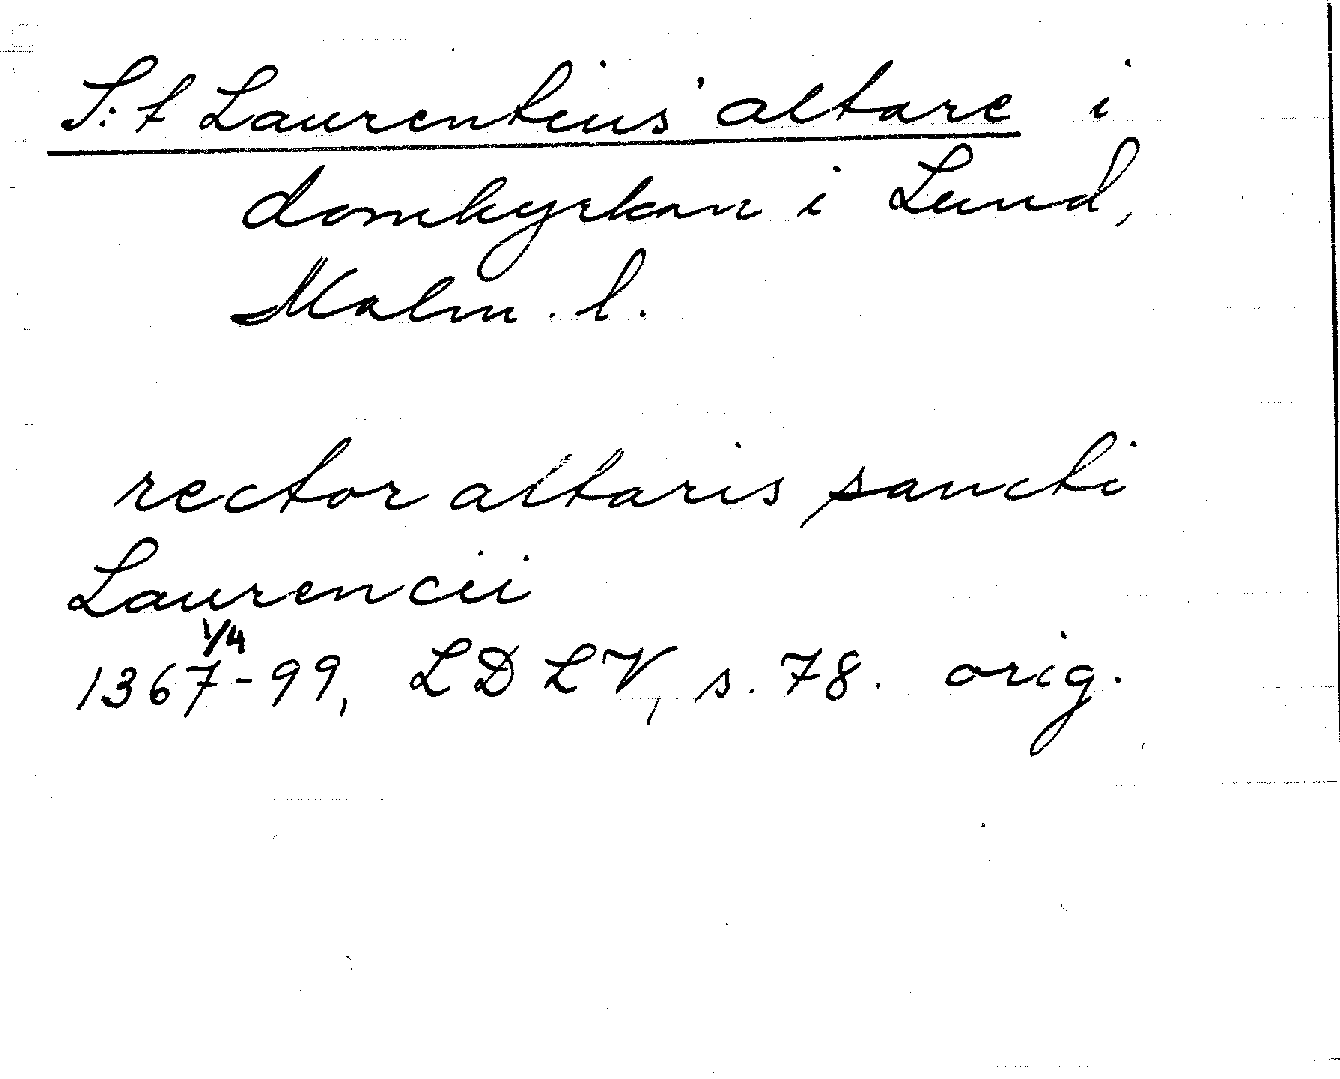 S:t Laurentius' altare i
domkyrkan i Lund,
Malm. l.
rector altaris sancti
Laurencii
1367 1/4 - 99, LDLV, s. 78. orig.